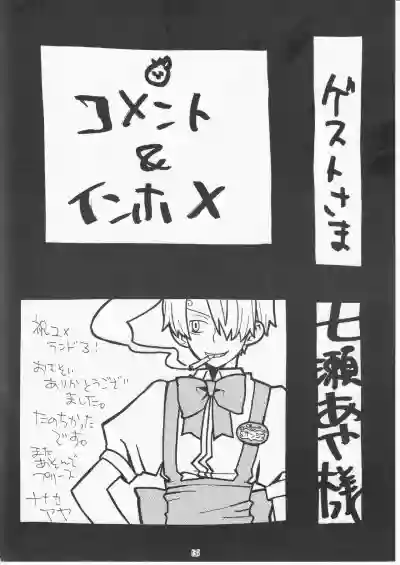 コメント
&
インホメ
ゲストさま
七瀬あや様
祝ユメ
ランド3!
おさそい
ありがとうござい
ました。
たのちかった
です。
また
あそんで
プリーズ
ナナセ
アヤ